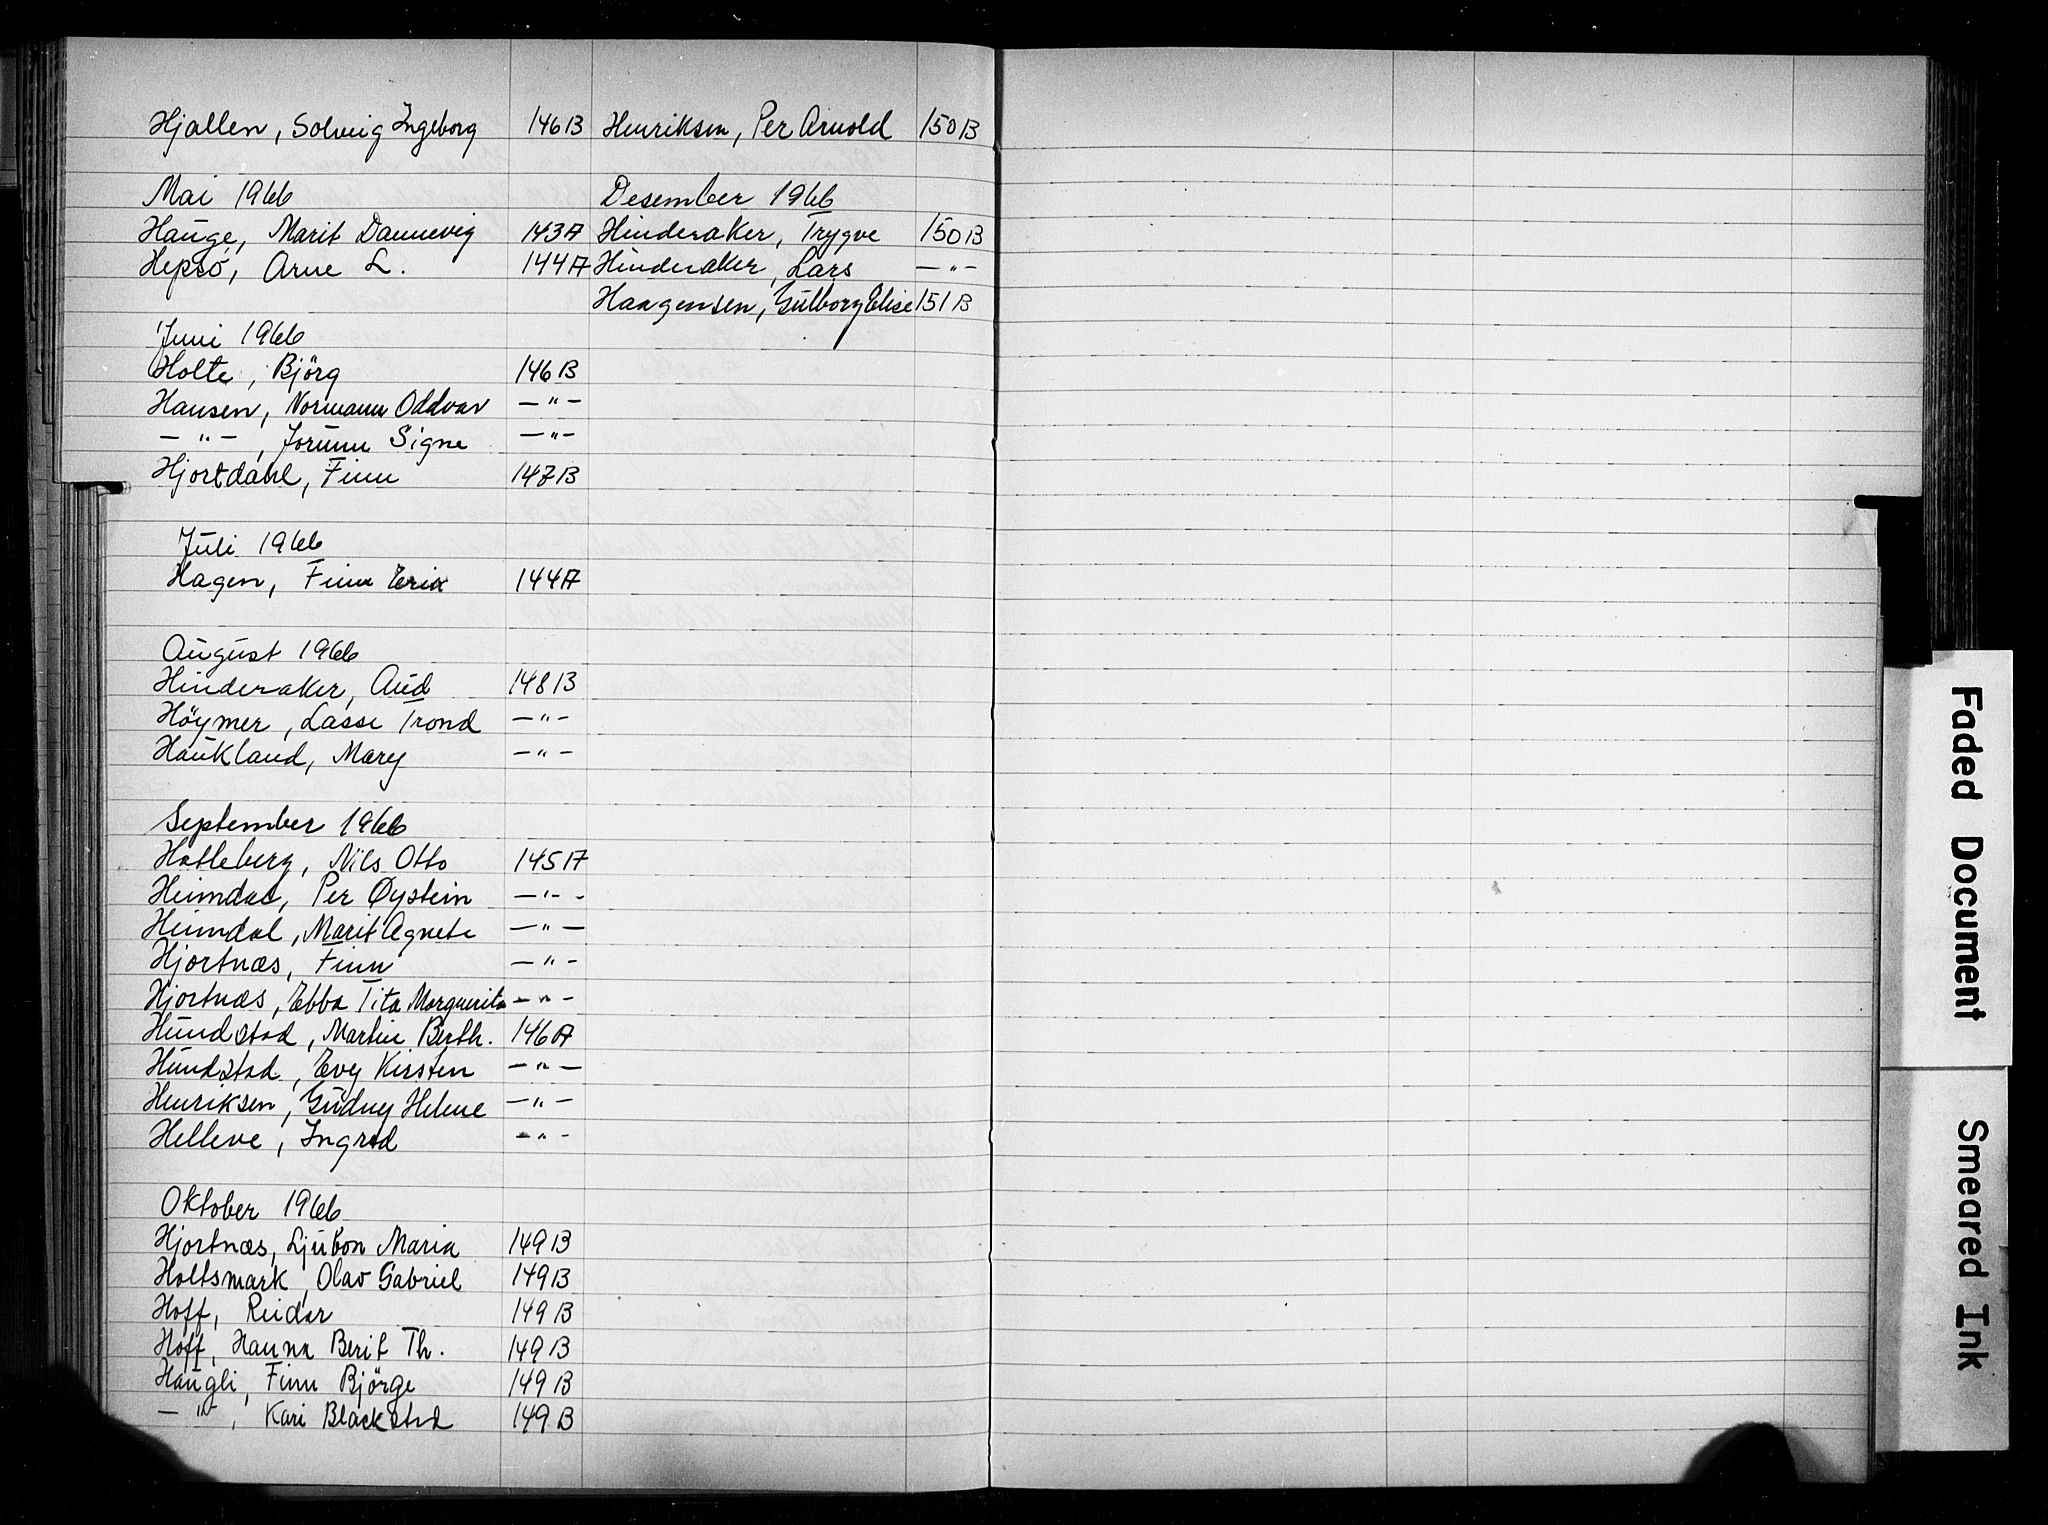 Hjallen, Solveig Ingeborg 146B
Mai 1966
Hauge, Marit Dannevig 143A
Hepsö, Arne L. 144A
Juni 1966
Holte, Björg 146B
Hansen, Normann Oddvar —"—
—"—, Jorunn Signe —"—
Hjortdahl, Finn 147B
Juli 1966
Hagen, Finn Erik 144A
August 1966
Hinderaker, Aud 148B
Höymer, Lasse Trond —"—
Haukland, Mary —"—
September 1966
Hatleberg, Nils Otto 145A
Heimdal, Per Øystein —"—
Heimdal, Marit Agnete —"—
Hjortnæs, Finn —"—
Hjortnæs, Ebba Tita Marguerita —"—
Hundstad, Martin Berth. 146A
Hundstad, Evy Kirsten —"—
Henriksen, Gudny Helene —"—
Helleve, Ingrid —"—
Oktober 1966
Hjortnæs, Ljubon Maria 149B
Holtsmark, Olav Gabriel 149B
Hoff, Reidar 149B
Hoff, Hanna Berit Th. 149B
Haugli, Finn Björge 149B
—"—, Kari Blackstad 149B
Henriksen, Per Arnold 150B
Desember 1966
Hinderaker, Trygve 150B
Hinderaker, Lars —"—
Haagensen, Gulborg Elise 151B
Faded Document
Smeared Ink